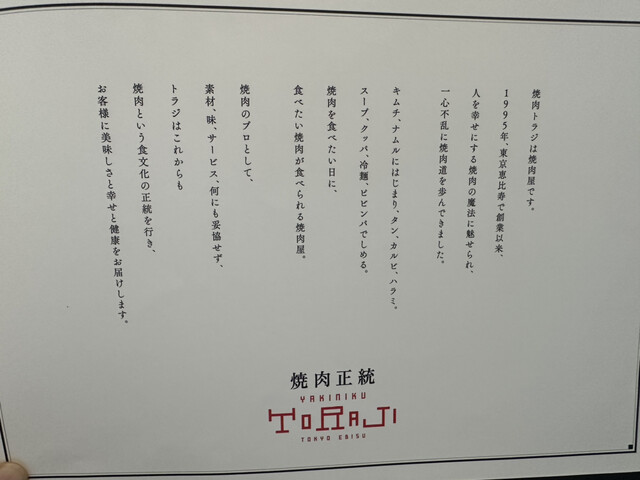 焼肉トラジは焼肉屋です。
1995年、東京恵比寿で創業以来、
人を幸せにする焼肉の魔法に魅せられ、
一心不乱に焼肉道を歩んできました。
キムチ、ナムルにはじまり、タン、カルビ、ハラミ。
スープ、クッパ、冷麺、ビビンバでしめる。
焼肉を食べたい日に、
食べたい焼肉が食べられる焼肉屋。
焼肉のプロとして、
素材、味、サービス、何にも妥協せず、
トラジはこれからも
焼肉という食文化の正統を行き、
お客様に美味しさと幸せと健康をお届けします。
焼肉正統
YAKINIKU
TORAJI
TOKYO EBISU